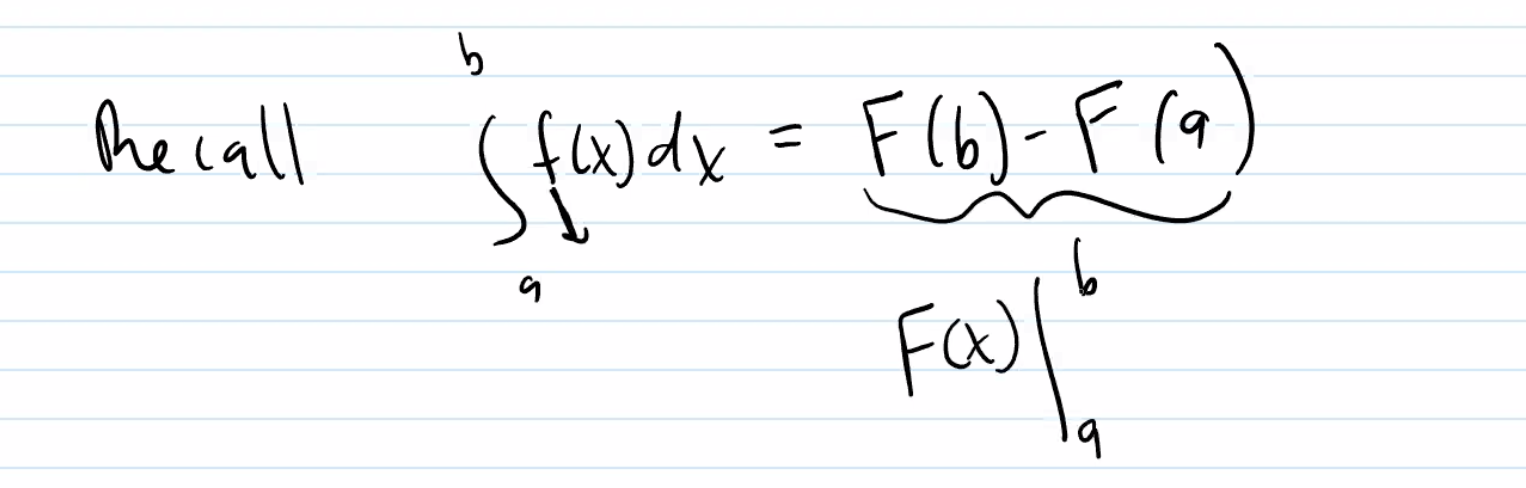 Recall ∫_a^b f(x) dx = F(b) - F(a)
F(x) |_a^b